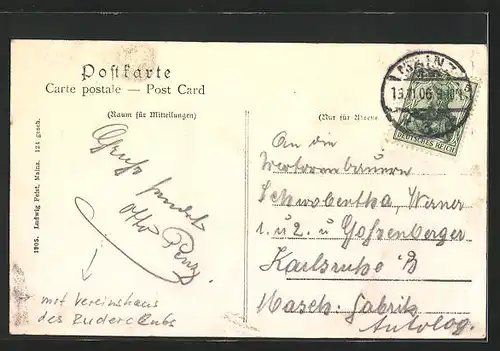 Postkarte
Carte postale — Post Card
(Raum für Mitteilungen)
(Nur für Adresse)
MAINZ
13.11.06
DEUTSCHES REICH
1905. Ludwig Feist, Mainz. 124 gesch.
Gruß sendet
Otto Penz.
mit Vereinshaus
des Ruderclubs
An die
Schwobentha, Werner
1. u 2. u Goßenberger
Karlsruhe i/B
Masch. Fabrik